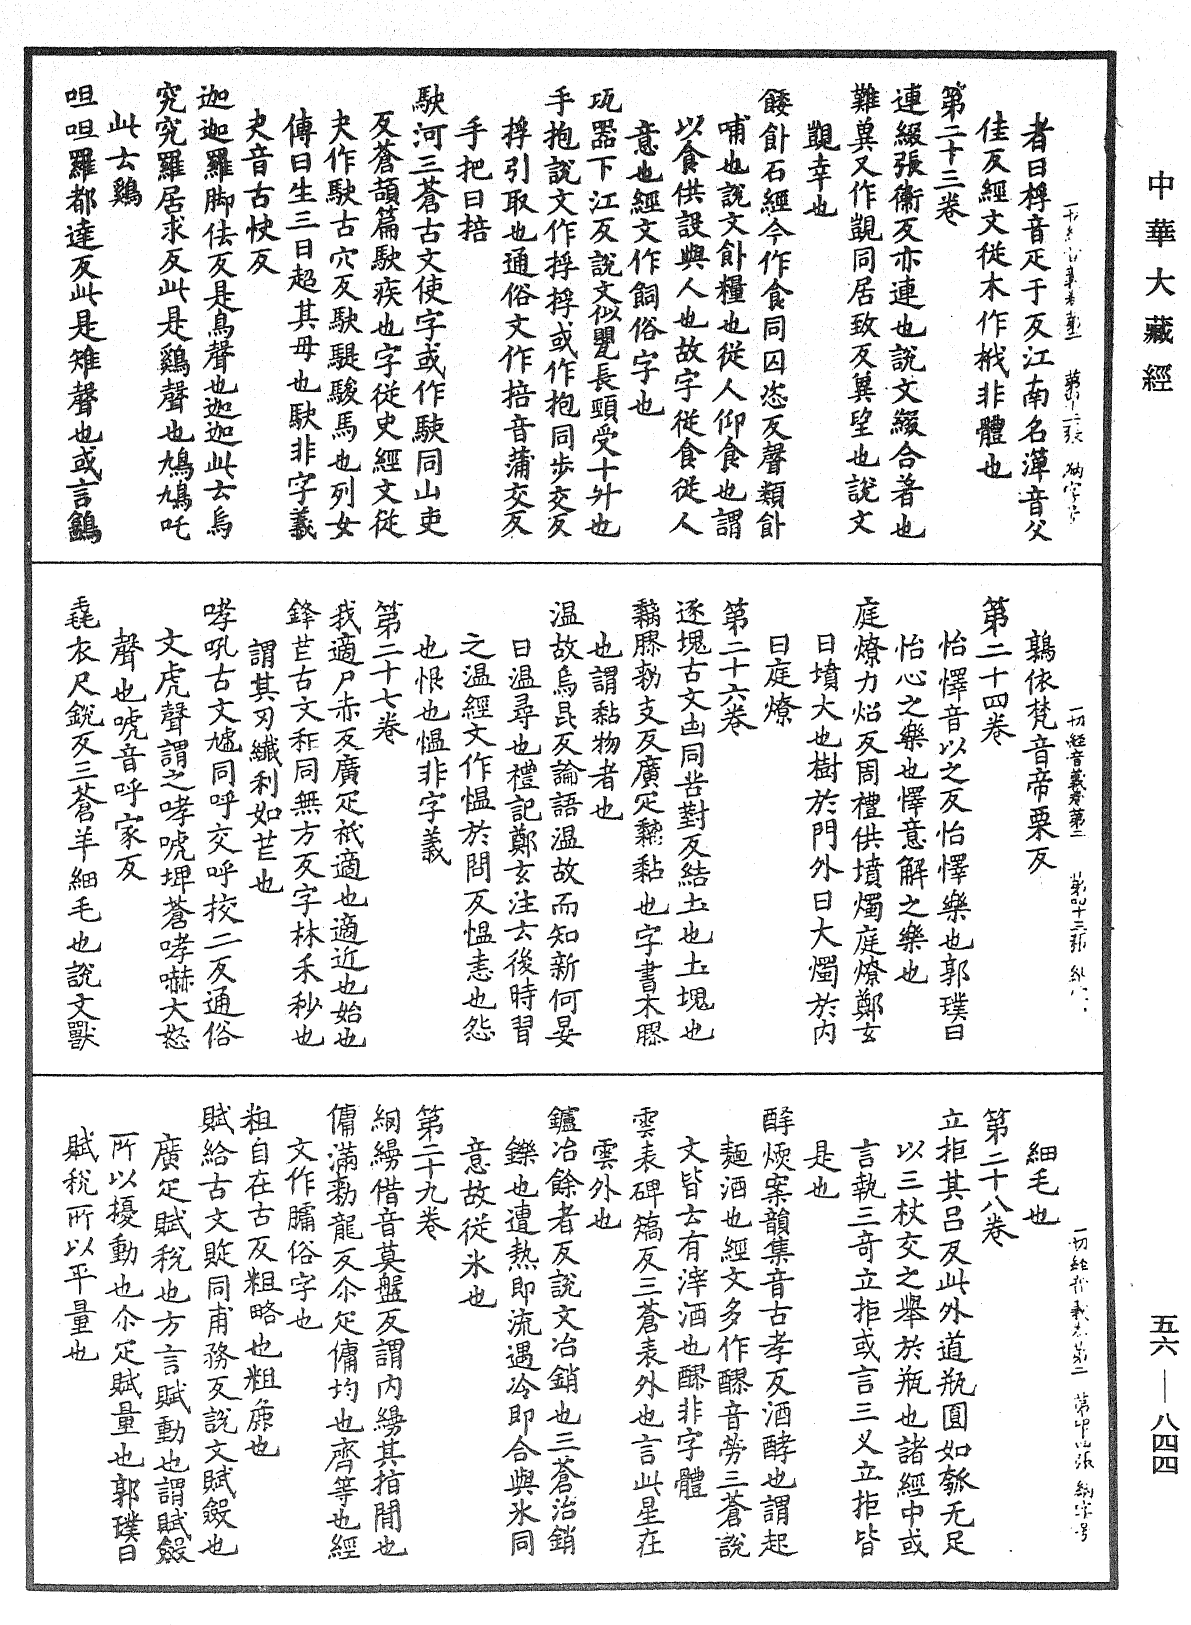 中華大藏經
五六—八四四
者曰桴音疋于反江南名䉬音父
佳反經文從木作栰非體也
第二十三卷
連綴張衞反亦連也說文綴合著也
難兾又作覬同居致反兾望也說文
覬幸也
餧飤石經今作食同囚恣反聲類飤
哺也說文飤糧也從人仰食也謂
以食供設與人也故字從食從人
意也經文作飼俗字也
瓨器下江反說文似甖長頸受十升也
手抱說文作捊捊或作抱同步交反
捊引取也通俗文作掊音蒲交反
手把曰掊
駛河三蒼古文使字或作駛同山吏
反蒼頡篇駛疾也字從史經文從
夬作駃古穴反駃騠駿馬也列女
傳曰生三日超其母也駃非字義
夬音古快反
迦迦羅脚佉反是鳥聲也迦迦此云烏
究究羅居求反此是鷄聲也鳩鳩吒
此云鷄
呾呾羅都達反此是雉聲也或言鷓
鷄依梵音帝栗反
第二十四卷
怡懌音以之反怡懌樂也郭璞曰
怡心之樂也懌意解之樂也
庭燎力炤反周禮供墳燭庭燎鄭玄
曰墳大也樹於門外曰大燭於内
曰庭燎
第二十六卷
逐塊古文凷同苦對反結土也土塊也
黐膠勑支反廣疋黐黏也字書木膠
也謂黏物者也
温故烏昆反論語温故而知新何晏
曰温尋也禮記鄭玄注云後時習
之温經文作愠於問反愠恚也怨
也恨也愠非字義
第二十七卷
我適尸赤反廣疋祇適也適近也始也
鋒芒古文𥝱同無方反字林禾秒也
謂其刃纖利如芒也
哮吼古文虓同呼交呼挍二反通俗
文虎聲謂之哮唬埤蒼哮嚇大怒
聲也唬音呼家反
毳衣尺銳反三蒼羊細毛也說文獸
細毛也
第二十八卷
立拒其呂反此外道瓶圓如瓠无足
以三杖交之舉於瓶也諸經中或
言執三奇立拒或言三叉立拒皆
是也
酵煗案韻集音古孝反酒酵也謂起
麺酒也經文多作醪音勞三蒼說
文皆云有滓酒也醪非字體
雲表碑矯反三蒼表外也言此星在
雲外也
鑪冶餘者反說文冶銷也三蒼冶銷
鑠也遭熱即流遇冷即合與氷同
意故從氷也
第二十九卷
網縵借音莫盤反謂内縵其指間也
傭滿勑龍反尒疋傭均也齊等也經
文作𦟛俗字也
粗自在古反粗略也粗麁也
賦給古文賍同甫務反說文賦斂也
廣疋賦稅也方言賦動也謂賦斂
所以擾動也尒疋賦量也郭璞曰
賦稅所以平量也